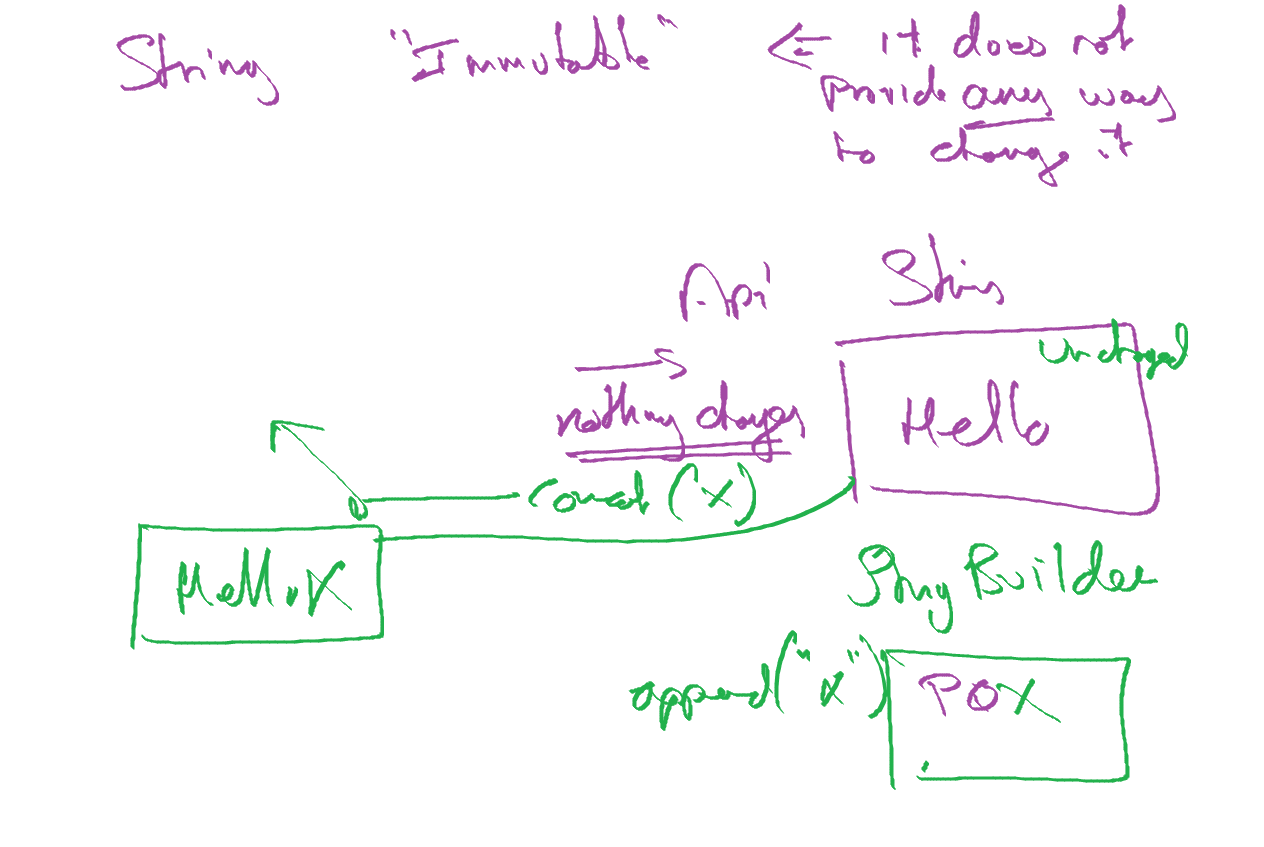 String "Immutable" ← it does not
provide any way
to change it
Api String
unchanged
→
nothing changes Hello
concat ("X")
HelloX
StringBuilder
append("x") POX